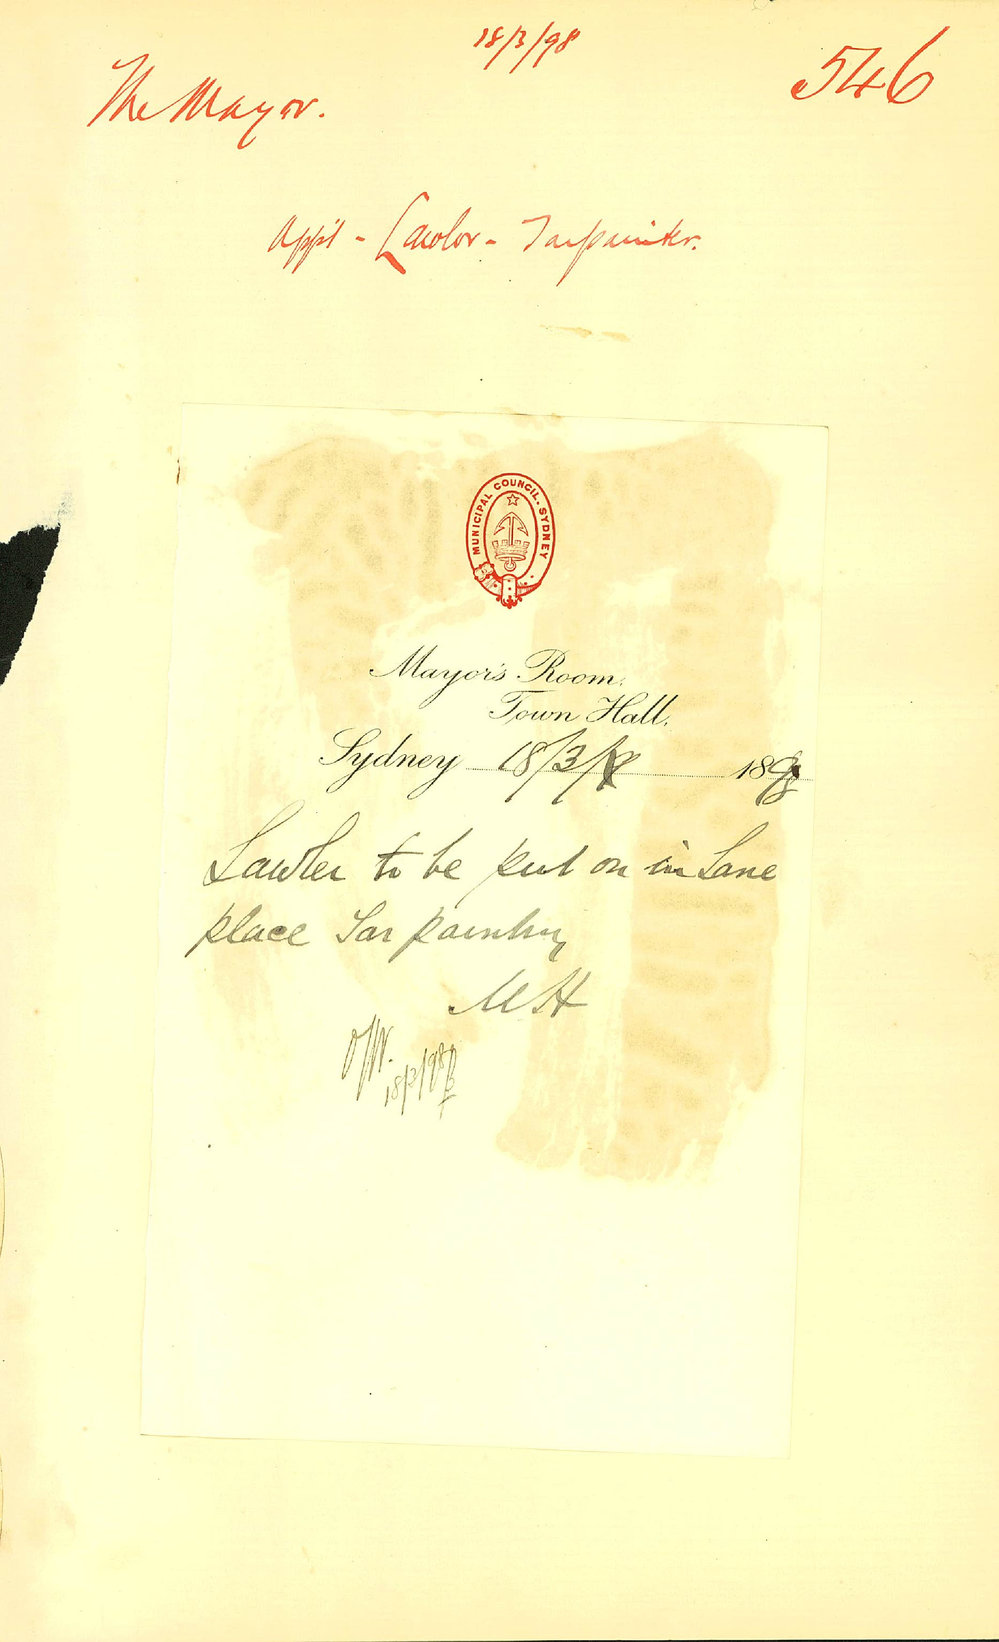 18/3/98
546
The Mayor.
App't - Lawlor - Tarpainter.
MUNICIPAL COUNCIL. SYDNEY
Mayor's Room,
Town Hall,
Sydney 18/3/ 1898
Lawler to be put on in Lane
place Tar painting
MH
18/3/98